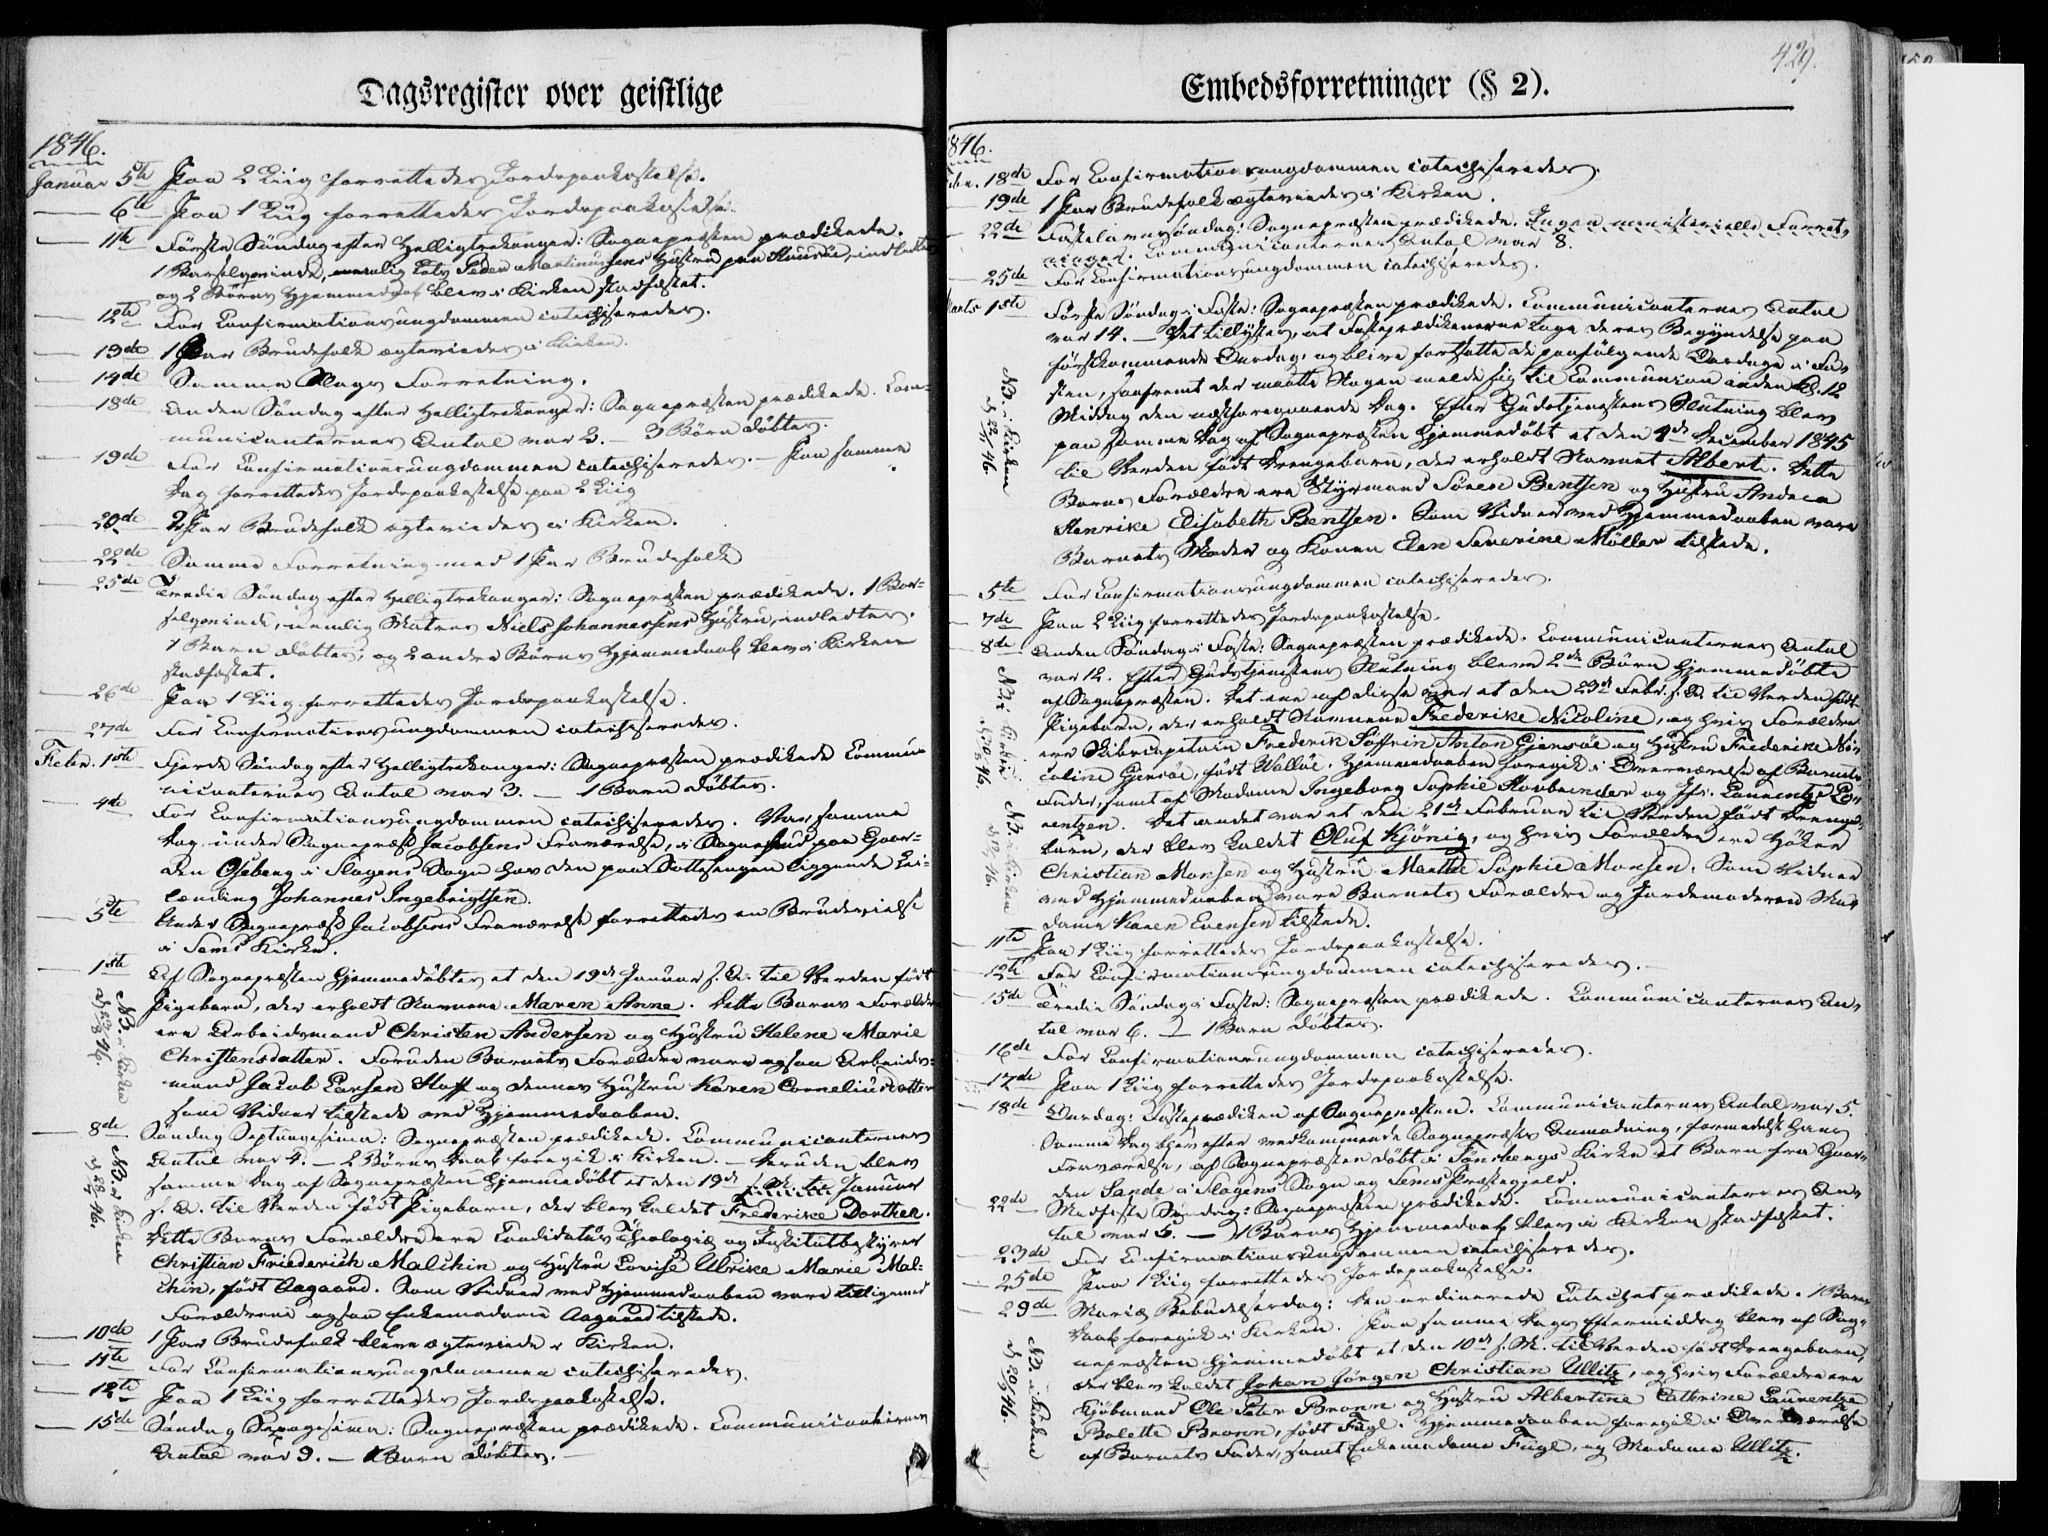 Dagsregister over geistlige
1846.
Januar 5te Paa 2 Liig forrettedes Jordspaakastelse.
6te Paa 1 Liig forrettedes Jordspaakastelse.
11te Første Søndag efter Helligtrekonger: Sognepræsten prædikede.
1 Barselqvinde, nemlig Peder Martinussens Hustru paa, indledtes
og 2 Børns Hjemmedaab blev i Kirken stadfæstet.
12te For Confirmationsungdommen catechiseredes.
13de 1 Par Brudefolk ægteviedes i Kirken.
14de Samme Slags Forretning.
18de Anden Søndag efter Helligtrekonger: Sognepræsten prædikede. Com-
municanternes Antal var 3. — 3 Børn døbtes.
19de For Confirmationsungdommen catechiseredes. — Paa samme
Dag forrettedes Jordspaakastelse paa 2 Liig
20de 2 Par Brudefolk ægteviedes i Kirken.
22de Samme Forretning med 1 Par Brudefolk
25de Tredie Søndag efter Helligtrekonger: Sognepræsten prædikede. 1 Bar-
selqvinde, nemlig Matros Niels Johannessens Hustru, indledtes.
1 Barn døbtes; og 2 andre Børns Hjemmedaab blev i Kirken
stadfæstet.
26de Paa 1 Liig forrettedes Jordspaakastelse.
27de For Confirmationsungdommen catechiseredes.
Febr. 1ste Fjerde Søndag efter Helligtrekonger: Sognepræsten prædikede Commu-
nicanternes Antal var 3. — 1 Barn døbtes.
4de For Confirmationsungdommen catechiseredes. Var samme
Dag under Sognepræst Jacobsens Fraværelse, i Sognebud paa Gaar-
den Oseberg i Slagens Sogn hos den paa Sottesengen liggende Lei-
lænding Johannes Ingebrigtsen.
5te Under Sognepræst Jacobsens Fraværelse forrettedes en Brudevielse
i Sems Kirke.
1ste Af Sognepræsten hjemmedøbtes et den 19de Januar s. A. til Verden født
Pigebarn, der erholdt Navnene Maren Anne. Dette Barns Forældre
ere Arbeidsmand Christen Andersen og Hustru Helene Marie
Christensdatter. Foruden Barnets Forældre vare ogsaa Arbeids-
mand Jacob Larsen Hoff og dennes Hustru Karen Corneliusdatter
som Vidner tilstede ved Hjemmedaaben.
NB. i Kirken
8de Søndag Septuagesima: Sognepræsten prædikede. Communicanternes
Antal var 4. — 2 Børns Daab foregik i Kirken. — Desuden blev
samme Dag af Sognepræsten hjemmedøbt et den 19de Januar
s. A. til Verden født Pigebarn, der blev kaldet Frederike Dorthea.
Dette Barns Forældre ere Candidatus Theologiæ og Institutbestyrer
Christian Friederich Malchin og Hustru Lovise Ulrike Marie Mal-
chin, født Aagaard. Som Vidner ved Hjemmedaaben vare tilligemed
Forældrene ogsaa Enkemadame Aagaard tilstede.
NB. i Kirken
10de 1 Par Brudefolk bleve ægteviede i Kirken.
11te For Confirmationsungdommen catechiseredes.
12te Paa 1 Liig forrettedes Jordspaakastelse.
15de Søndag Sexagesima: Sognepræsten prædikede. Communicanternes
Antal var 9. — 1 Barn døbtes. —
Embedsforretninger (§ 2).
429.
1846.
Febr. 18de For Confirmationsungdommen catechiseredes.
19de 1 Par Brudefolk ægteviedes i Kirken.
22de Fastelavnssøndag: Sognepræsten prædikede. Ingen ministerielle Forret-
ninger. Communicanternes Antal var 8.
25de For Confirmationsungdommen catechiseredes.
Marts 1ste Første Søndag i Faste: Sognepræsten prædikede. Communicanternes Antal
var 14. — Det tillystes, at Fasteprædikenerne tage deres Begyndelse paa
førstkommende Onsdag, og blive fortsatte de paafølgende Onsdage i Fa-
sten, saafremt der maatte Nogen melde sig til Communion inden Kl. 12
Middag den næstforegaaende Dag. Efter Gudstjenestens Slutning blev
paa samme Dag af Sognepræsten hjemmedøbt et den 4de December 1845
til Verden født Drengebarn, der erholdt Navnet Albert. Dette
Barns Forældre ere Styrmand Søren Bentsen og Hustru Andrea
Henrike Elisabeth Bentsen. Som Vidner ved Hjemmedaaben vare
Barnets Moder og Konen Elen Severine Møller tilstede.
NB. i Kirken
5te For Confirmationsungdommen catechiseredes.
7de Paa 2 Liig forrettedes Jordspaakastelse.
8de Anden Søndag i Faste: Sognepræsten prædikede. Communicanternes Antal
var 12. Efter Gudstjenestens Slutning bleve 2de Børn hjemmedøbte
af Sognepræsten. Det ene af disse var et den 23de Febr. s. A. til Verden født
Pigebarn, der erholdt Navnene Frederike Nicoline, og hvis Forældre
ere Skibscapitain Frederik Söffrin Anton Gjersøe og Hustru Frederike Ni-
coline Gjersøe, født Walløe. Hjemmedaaben foregik i Overværelse af Barnets
Fader, samt af Madame Ingeborg Sophie Hovbrender og Jfr. Laurentze Lo-
rentzen. Det andet var et den 21de Februar til Verden født Drenge-
barn, der blev kaldet Oluf Kjönig, og hvis Forældre ere Høker
Christian Monsen og Hustru Marthe Sophie Monsen. Som Vidner
ved Hjemmedaaben vare Barnets Forældre og Jordemoderen Ma-
dame Karen Evensen tilstede.
NB. i Kirken
NB. i Kirken
11te Paa 1 Liig forrettedes Jordspaakastelse.
12te For Confirmationsungdommen catechiseredes. —
15de Tredie Søndag i Faste: Sognepræsten prædikede. Communicanternes An-
tal var 6. — 1 Barn døbtes.
16de For Confirmationsungdommen catechiseredes.
17de Paa 1 Liig forrettedes Jordspaakastelse.
18de Onsdag: Fasteprædiken af Sognepræsten. Communicanternes Antal var 5.
Samme Dag blev efter vedkommende Sognepræsts Anmodning, formedelst hans
Fraværelse, af Sognepræsten døbt i Tønsbergs Kirke et Barn fra Gaar-
den Sande i Slagens Sogn og Sems Præstegjeld.
22de Midfaste Søndag: Sognepræsten prædikede. Communicanternes An-
tal var 5. — 1 Barns Hjemmedaab blev i Kirken stadfæstet.
23de For Confirmationsungdommen catechiseredes.
25de Paa 1 Liig forrettedes Jordspaakastelse.
29de Mariæ Bebudelsesdag: Den ordinerede Catechet prædikede. 1 Barns
Daab foregik i Kirken. Paa samme Dags Eftermiddag blev af Sog-
nepræsten hjemmedøbt et den 10de s. M. til Verden født Drengebarn,
der blev kaldet Johan Jørgen Christian Ullitz, og hvis Forældre ere
Kjøbmand Ole Peter Bronn og Hustru Albertine Cathrine Laurentze
Bolette Bronn, født Fugl. Hjemmedaaben foregik i Overværelse
af Barnets Fader, samt Enkemadame Fugl, og Madame Ullitz.
NB. i Kirken